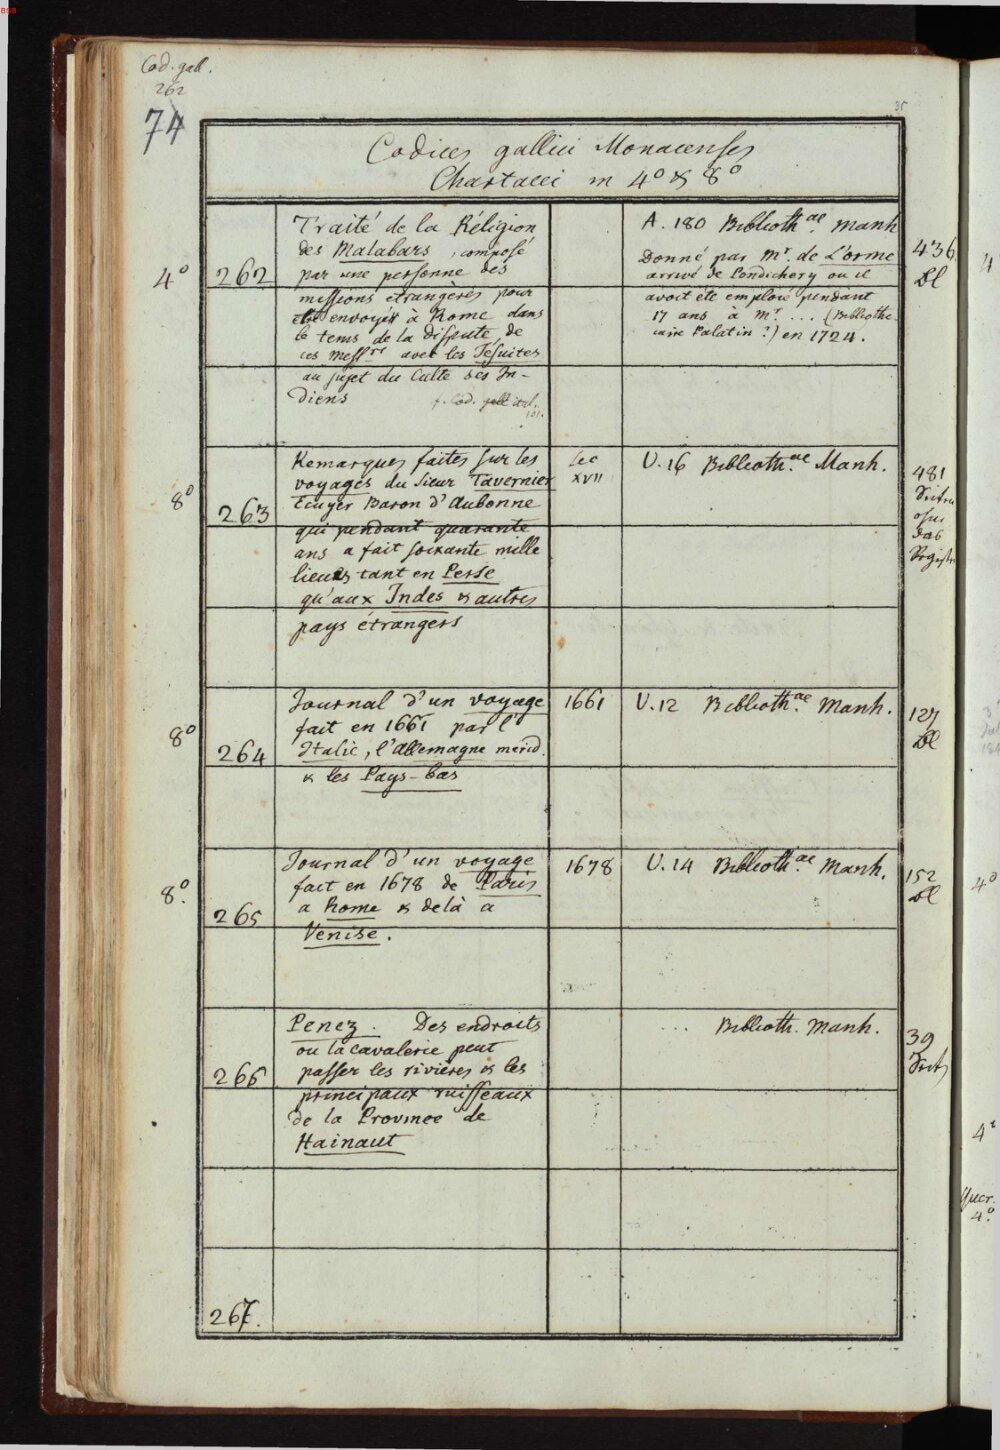 BSB
Cod. gall.
262
74
35
Codices gallici Monacenses
Chartacei in 4º & 8º
4º
262
Traité de la Réligion
des Malabars, composé
par une personne des
missions etrangères pour
etre envoyés à Rome dans
le tems de la dispute de
ces Messrs avec les Jesuites
au sujet du Culte des In-
diens
f. Cod. gall ital.
101.
A. 180 Biblioth.ae Manh
Donné par Mr. de L'orme
arrivé de Pondichery ou il
avoit éte emploié pendant
17 ans à Mr. ... (Bibliothe-
caire Palatin?) en 1724.
436
Bl
8º
263
Remarques faites sur les
voyages du Sieur Tavernier
Ecuyer Baron d'Aubonne
qui pendant quarante
ans a fait soixante mille
lieues tant en Perse
qu'aux Indes & autres
pays étrangers
Sec
XVII
U. 16 Biblioth.ae Manh.
481
das
8º
264
Journal d'un voyage
fait en 1661 par l'
Italie, l'Allemagne merid.
& les Pays-bas
1661
U. 12 Biblioth.ae Manh.
127
Bl
8º.
265
Journal d'un voyage
fait en 1678 de Paris
a Rome & delà a
Venise.
1678
U. 14 Biblioth.ae Manh.
152
Bl
266
Penez. Des endroits
ou la cavalerie peut
passer les rivières & les
principaux ruisseaux
de la Province de
Hainaut
... Biblioth. Manh.
39
267.
4
4º
4º
4º